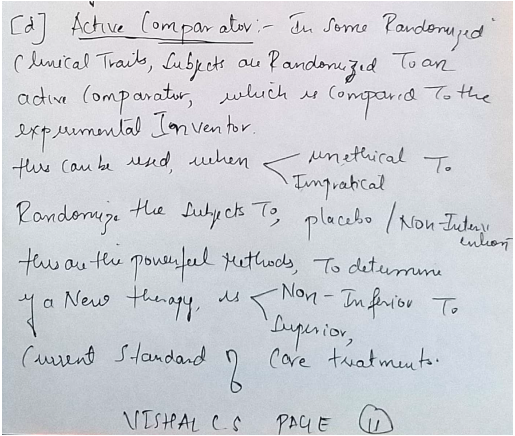 [d] Active Comparator:- In Some Randomized
Clinical Trails, Subjects are Randomized To an
active Comparator, which is Compared To the
experimental Inventor.
this can be used, when < unethical To
Impratical
Randomize the Subjects To, placebo / Non-Interv
ention
this are the powerful Methods, To determine
if a New therapy, is < Non-Inferior To
Superior,
Current Standard of Care treatments.
VISHAL C.S PAGE 11